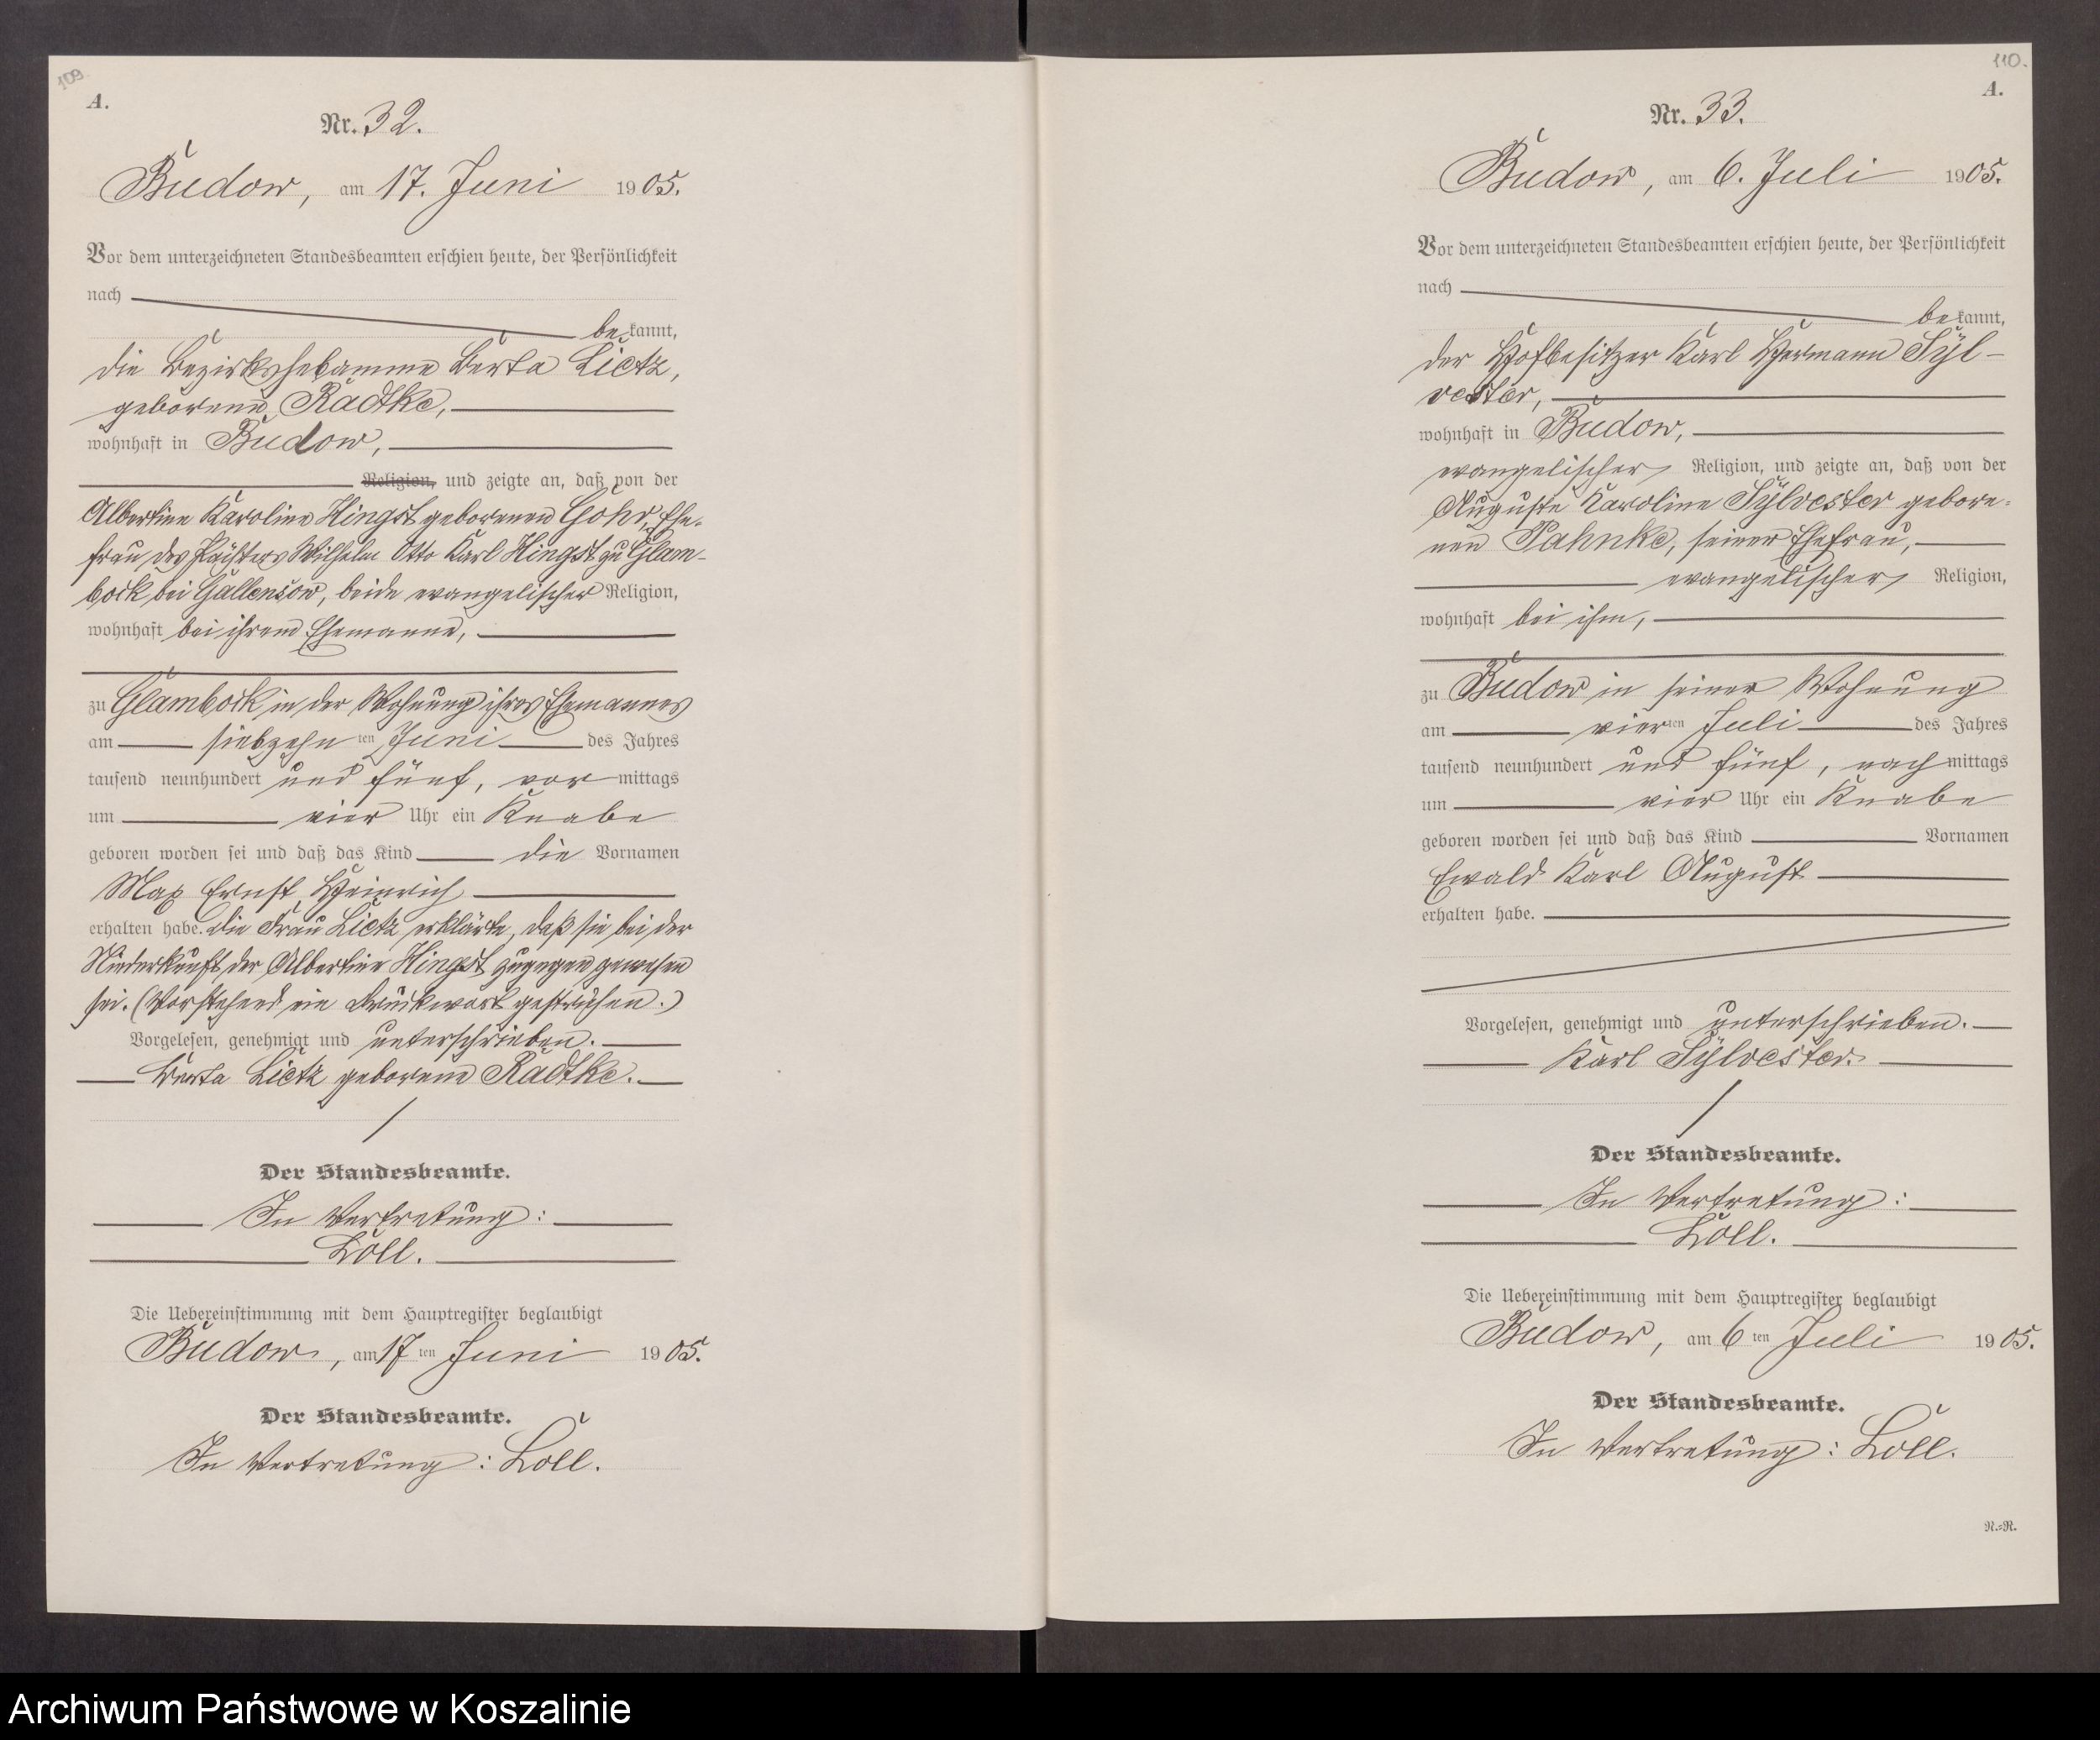 109
A.
Nr. 32.
Budow, am 17. Juni 1905.
Vor dem unterzeichneten Standesbeamten erschien heute, der Persönlichkeit
nach
bekannt,
die Bezirkshebamme Berta Lietz,
geborene Radtke,
wohnhaft in Budow,
Religion, und zeigte an, daß von der
Albertine Karoline Hingst geborenen Gohr, Ehe-
frau des Pächters Wilhelm Otto Karl Hingst zu Glam-
bock bei Gallensow, beide evangelischer Religion,
wohnhaft bei ihrem Ehemanne,
zu Glambock in der Wohnung ihres Ehemannes
am siebzehnten Juni des Jahres
tausend neunhundert und fünf, vormittags
um vier Uhr ein Knabe
geboren worden sei und daß das Kind die Vornamen
Max Ernst Heinrich
erhalten habe. Die Frau Lietz erklärte, daß sie bei der
Niederkunft der Albertine Hingst zugegen gewesen
sei. (Vorstehend ein Druckwort gestrichen.)
Vorgelesen, genehmigt und unterschrieben.
Berta Lietz geborene Radtke.
Der Standesbeamte.
In Vertretung:
Loll.
Die Uebereinstimmung mit dem Hauptregister beglaubigt
Budow, am 17ten Juni 1905.
Der Standesbeamte.
In Vertretung: Loll.
110.
A.
Nr. 33.
Budow, am 6. Juli 1905.
Vor dem unterzeichneten Standesbeamten erschien heute, der Persönlichkeit
nach
bekannt,
der Hofbesitzer Karl Hermann Syl-
vester,
wohnhaft in Budow,
evangelischer Religion, und zeigte an, daß von der
Auguste Karoline Sylvester gebore-
nen Pahnke, seiner Ehefrau,
evangelischer Religion,
wohnhaft bei ihm,
zu Budow in seiner Wohnung
am vierten Juli des Jahres
tausend neunhundert und fünf, nachmittags
um vier Uhr ein Knabe
geboren worden sei und daß das Kind Vornamen
Ewald Karl August
erhalten habe.
Vorgelesen, genehmigt und unterschrieben.
Karl Sylvester.
Der Standesbeamte.
In Vertretung:
Loll.
Die Uebereinstimmung mit dem Hauptregister beglaubigt
Budow, am 6ten Juli 1905.
Der Standesbeamte.
In Vertretung: Loll.
N.=R.
Archiwum Państwowe w Koszalinie